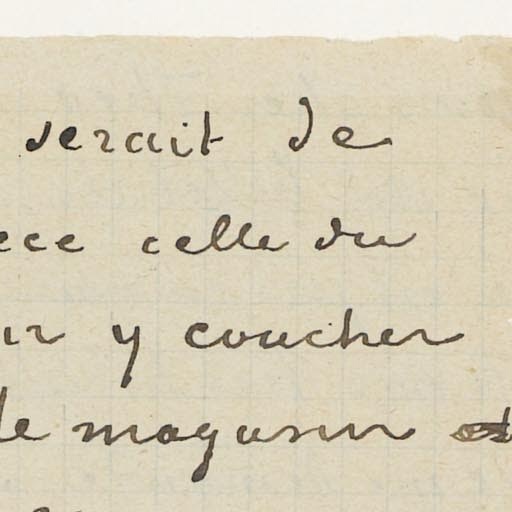 serait de
ece celle du
ur y coucher
de magasin